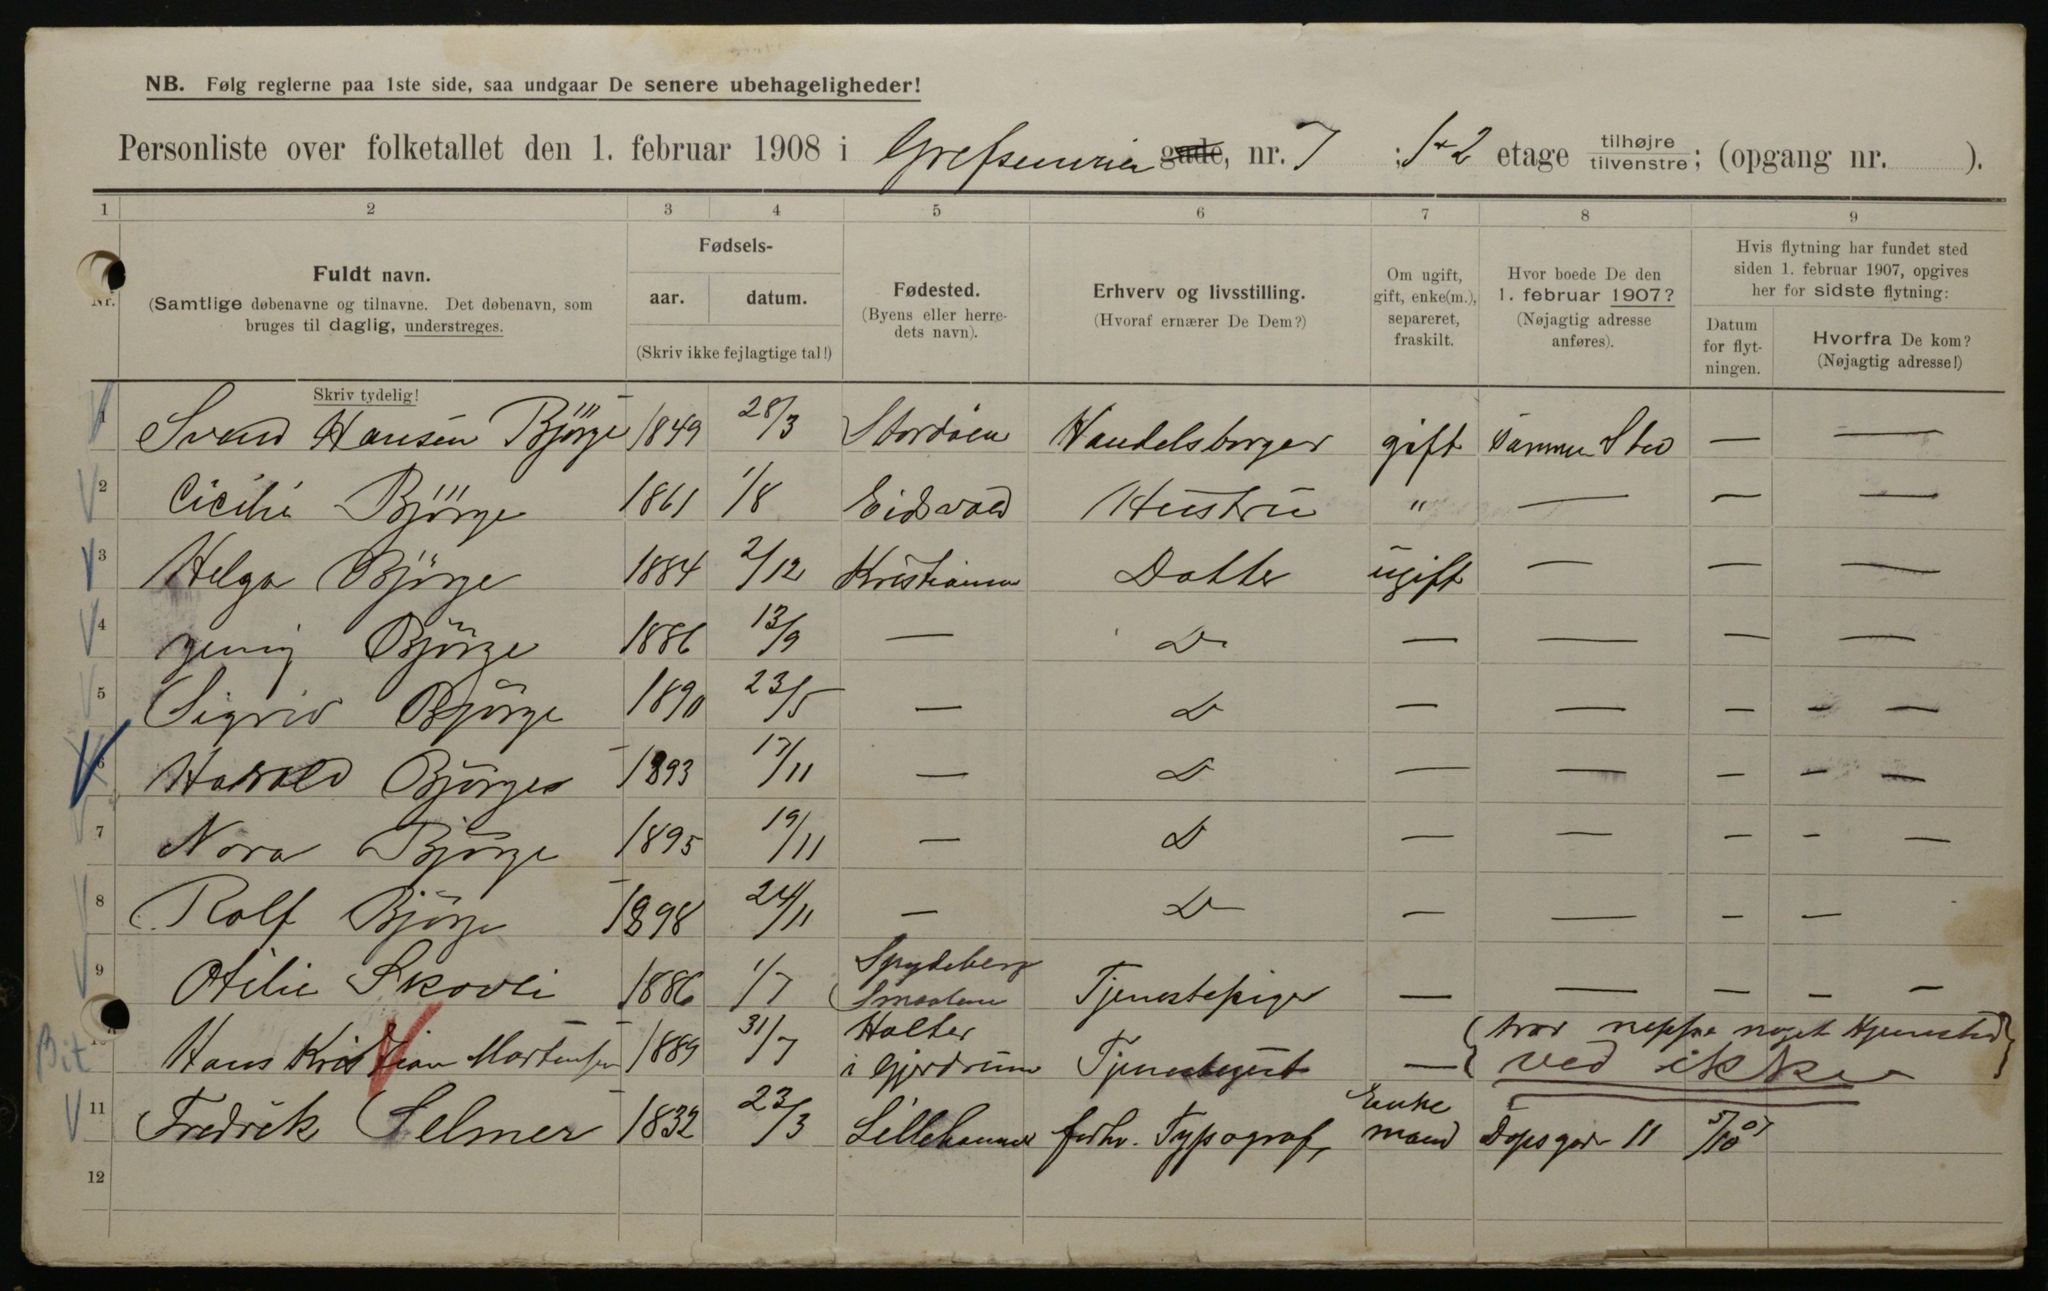 NB. Følg reglerne paa 1ste side, saa undgaar De senere ubehageligheder!
Personliste over folketallet den 1. februar 1908 i Grefsenveien gade, nr. 7 ; 1 + 2 etage tilhøjre tilvenstre; (opgang nr. ).
1 2 3 4 5 6 7 8 9
Nr. Fuldt navn. (Samtlige døbenavne og tilnavne. Det døbenavn, som bruges til daglig, understreges.
Skriv tydelig!
Fødsels-
aar. datum.
(Skriv ikke fejlagtige tal!)
Fødested. (Byens eller herredets navn).
Erhverv og livsstilling. (Hvoraf ernærer De Dem?)
Om ugift, gift, enke(m.), separeret, fraskilt.
Hvor boede De den 1. februar 1907? (Nøjagtig adresse anføres).
Hvis flytning har fundet sted siden 1. februar 1907, opgives her for sidste flytning:
Datum for flytningen.
Hvorfra De kom? (Nøjagtig adresse!)
1 Svend Hansen Björge 1849 28/3 Stordöen Handelsborger gift Samme Sted — —
2 Cicilie Björge 1861 1/8 Eidsvold Hustru " — — —
3 Helga Björge 1884 2/12 Kristiania Datter ugift — — —
4 Björge 1886 13/9 — D — — — —
5 Sigrid Björge 1890 23/5 — D — — — — —
6 Harald Björge 1893 17/11 — D — — — — —
7 Nora Björge 1895 19/11 — D — — — — —
8 Rolf Björge 1898 24/11 — D — — — —
9 Otilie Skovli 1886 1/7 Spydeberg Smaalene Tjenestepige — — — — —
Bit 10 Hans Kristian Mortensen 1889 31/7 Holter i Gjerdrum Tjenestegut — (har neppe noget Hjemsted ved ikke)
11 Fredrik Selmer 1832 23/3 Lillehammer forhv. Typograf, Enkemand Dopsgade 11 5/10 07
12